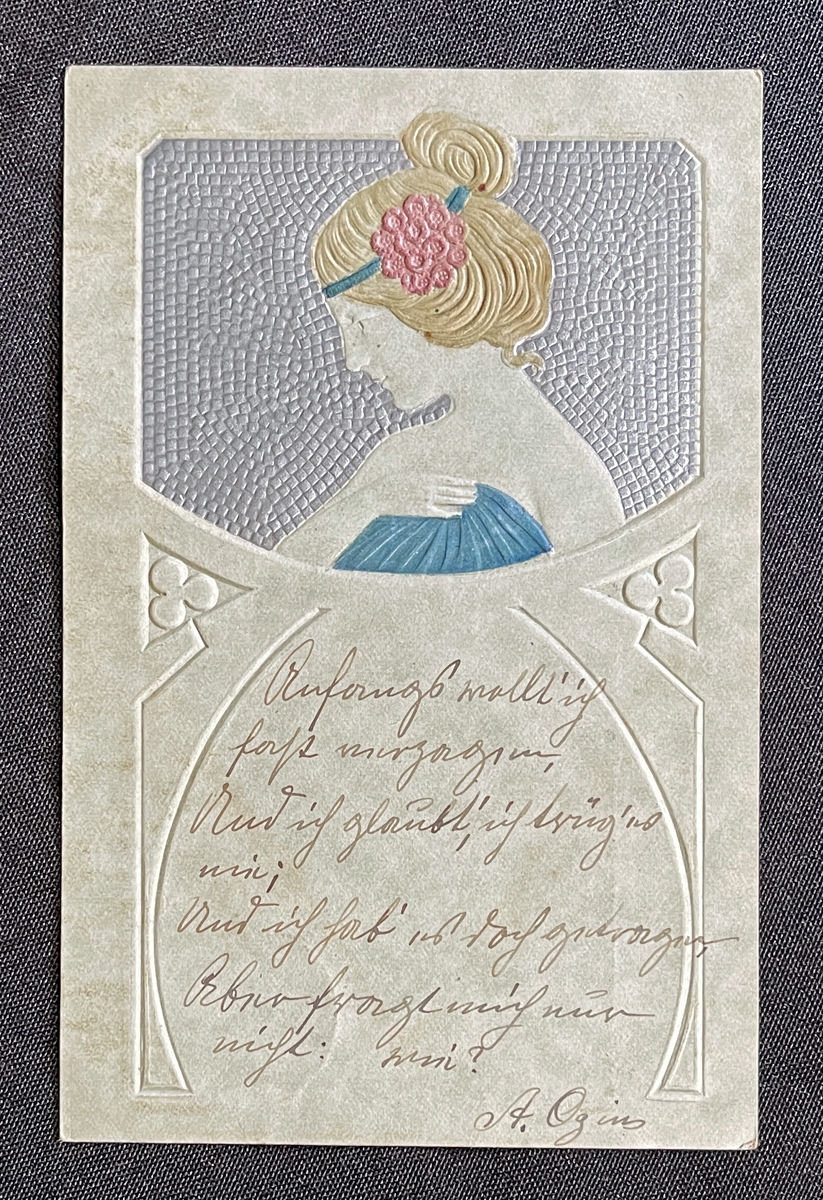 Anfangs wollt' ich
fast verzagen,
Und ich glaubt', ich trüg' es
nie;
Und ich hab' es doch getragen,
Aber fragt mich nur
nicht: wie?
A. Ozius